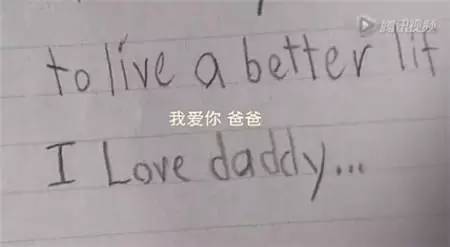 腾讯视频
to live a better lif
我爱你 爸爸
I Love daddy...